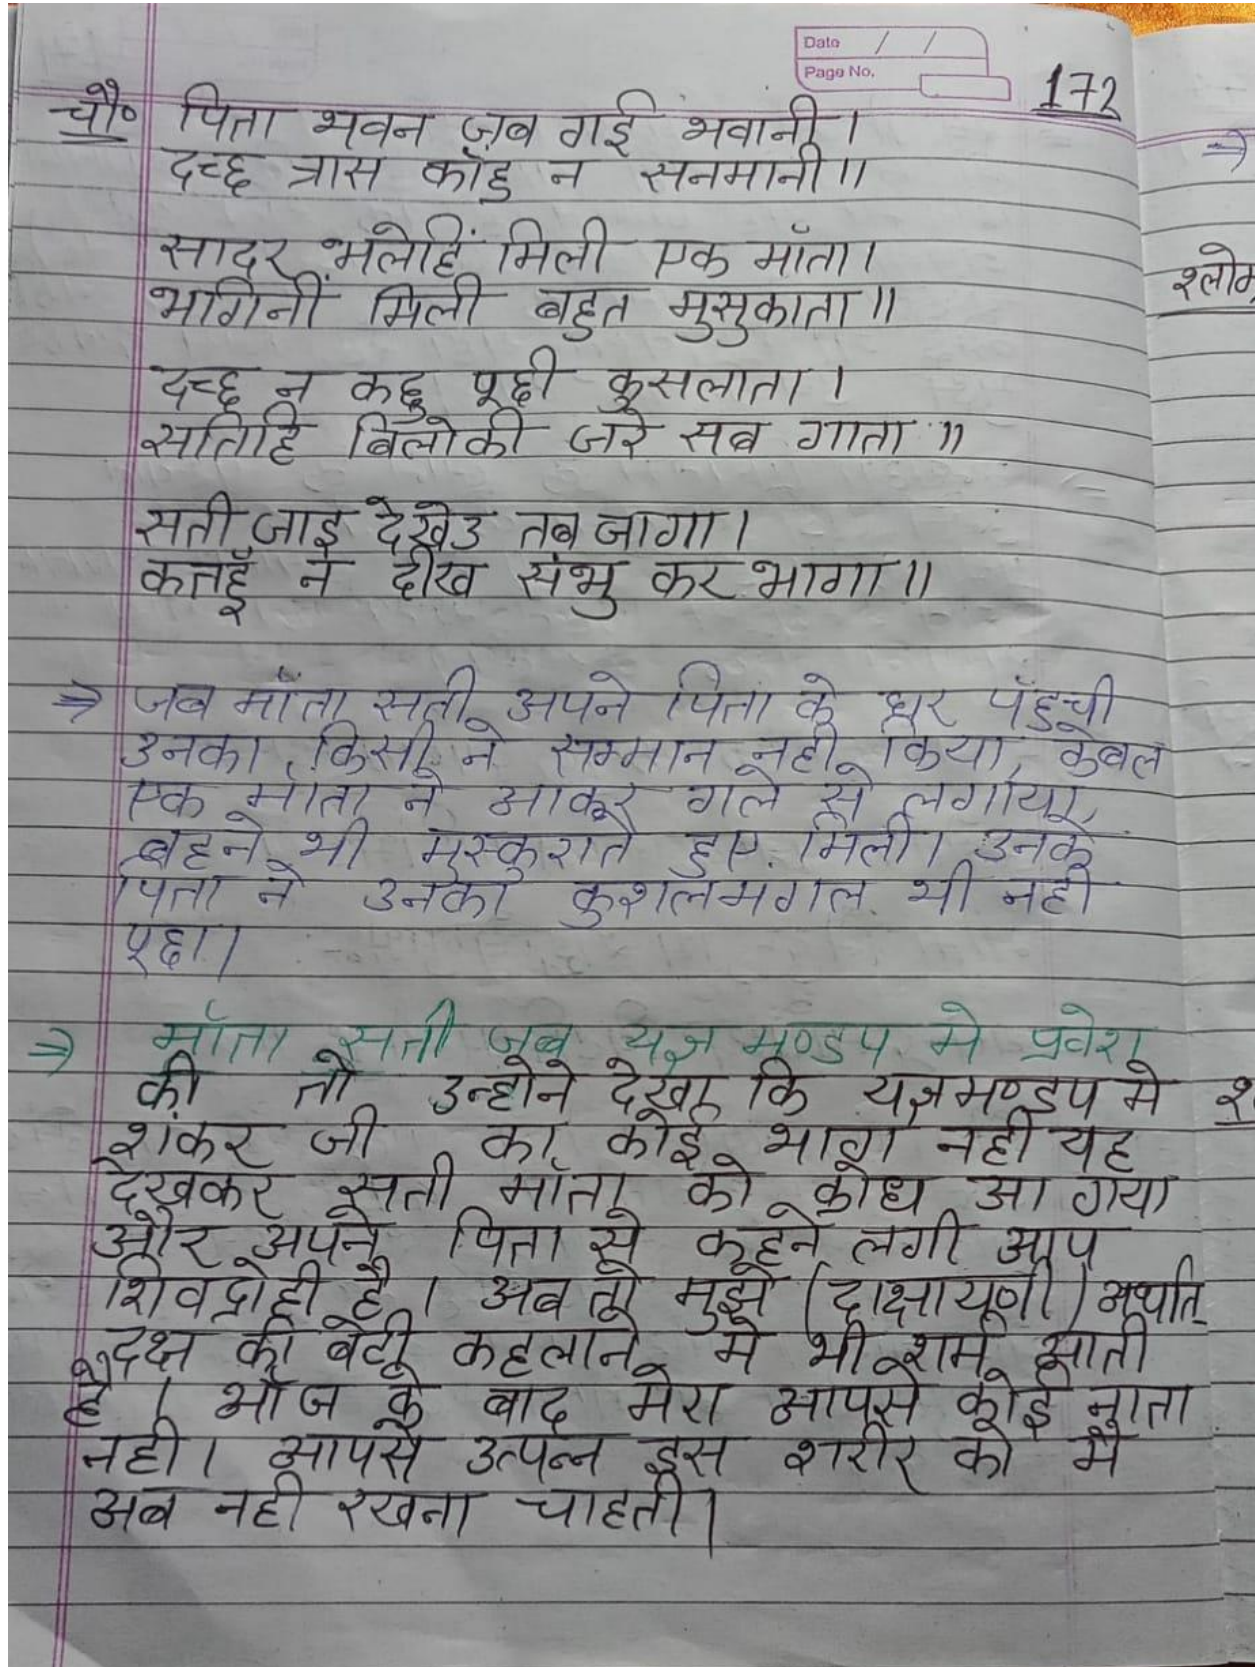 Date / /
Page No.
172
चौ० पिता भवन जब गई भवानी।
दच्छ त्रास काँहु न सनमानी॥
सादर भलेहिं मिली एक माँता।
भागिनीं मिली बहुत मुसुकाता॥
दच्छ न कछु पूछी कुसलाता।
सतिहि बिलोकी जरे सब गाता॥
सती जाइ देखेउ तब जागा।
कतहूँ न दीख संभु कर भागा॥
⇒ जब माँता सती अपने पिता के घर पँहुची
उनका किसी ने सम्मान नही किया, केवल
एक माँता ने आकर गले से लगाया,
बहने भी मुस्कुराते हुए मिली। उनके
पिता ने उनका कुशलमंगल भी नही
पूछा।
⇒ माँता सती जब यज्ञ मण्डप मे प्रवेश
की तो उन्होने देखा कि यज्ञमण्डप मे
शंकर जी का कोई भाग नही यह
देखकर सती माँता को क्रोध आ गया
और अपने पिता से कहने लगी आप
शिवद्रोही है। अब तो मुझे (दाक्षायणी) अर्थात्
दक्ष की बेटी कहलाने मे भी शर्म आती
है। आज के बाद मेरा आपसे कोई नाता
नही। आपसे उत्पन्न इस शरीर को मै
अब नही रखना चाहती।
⇒